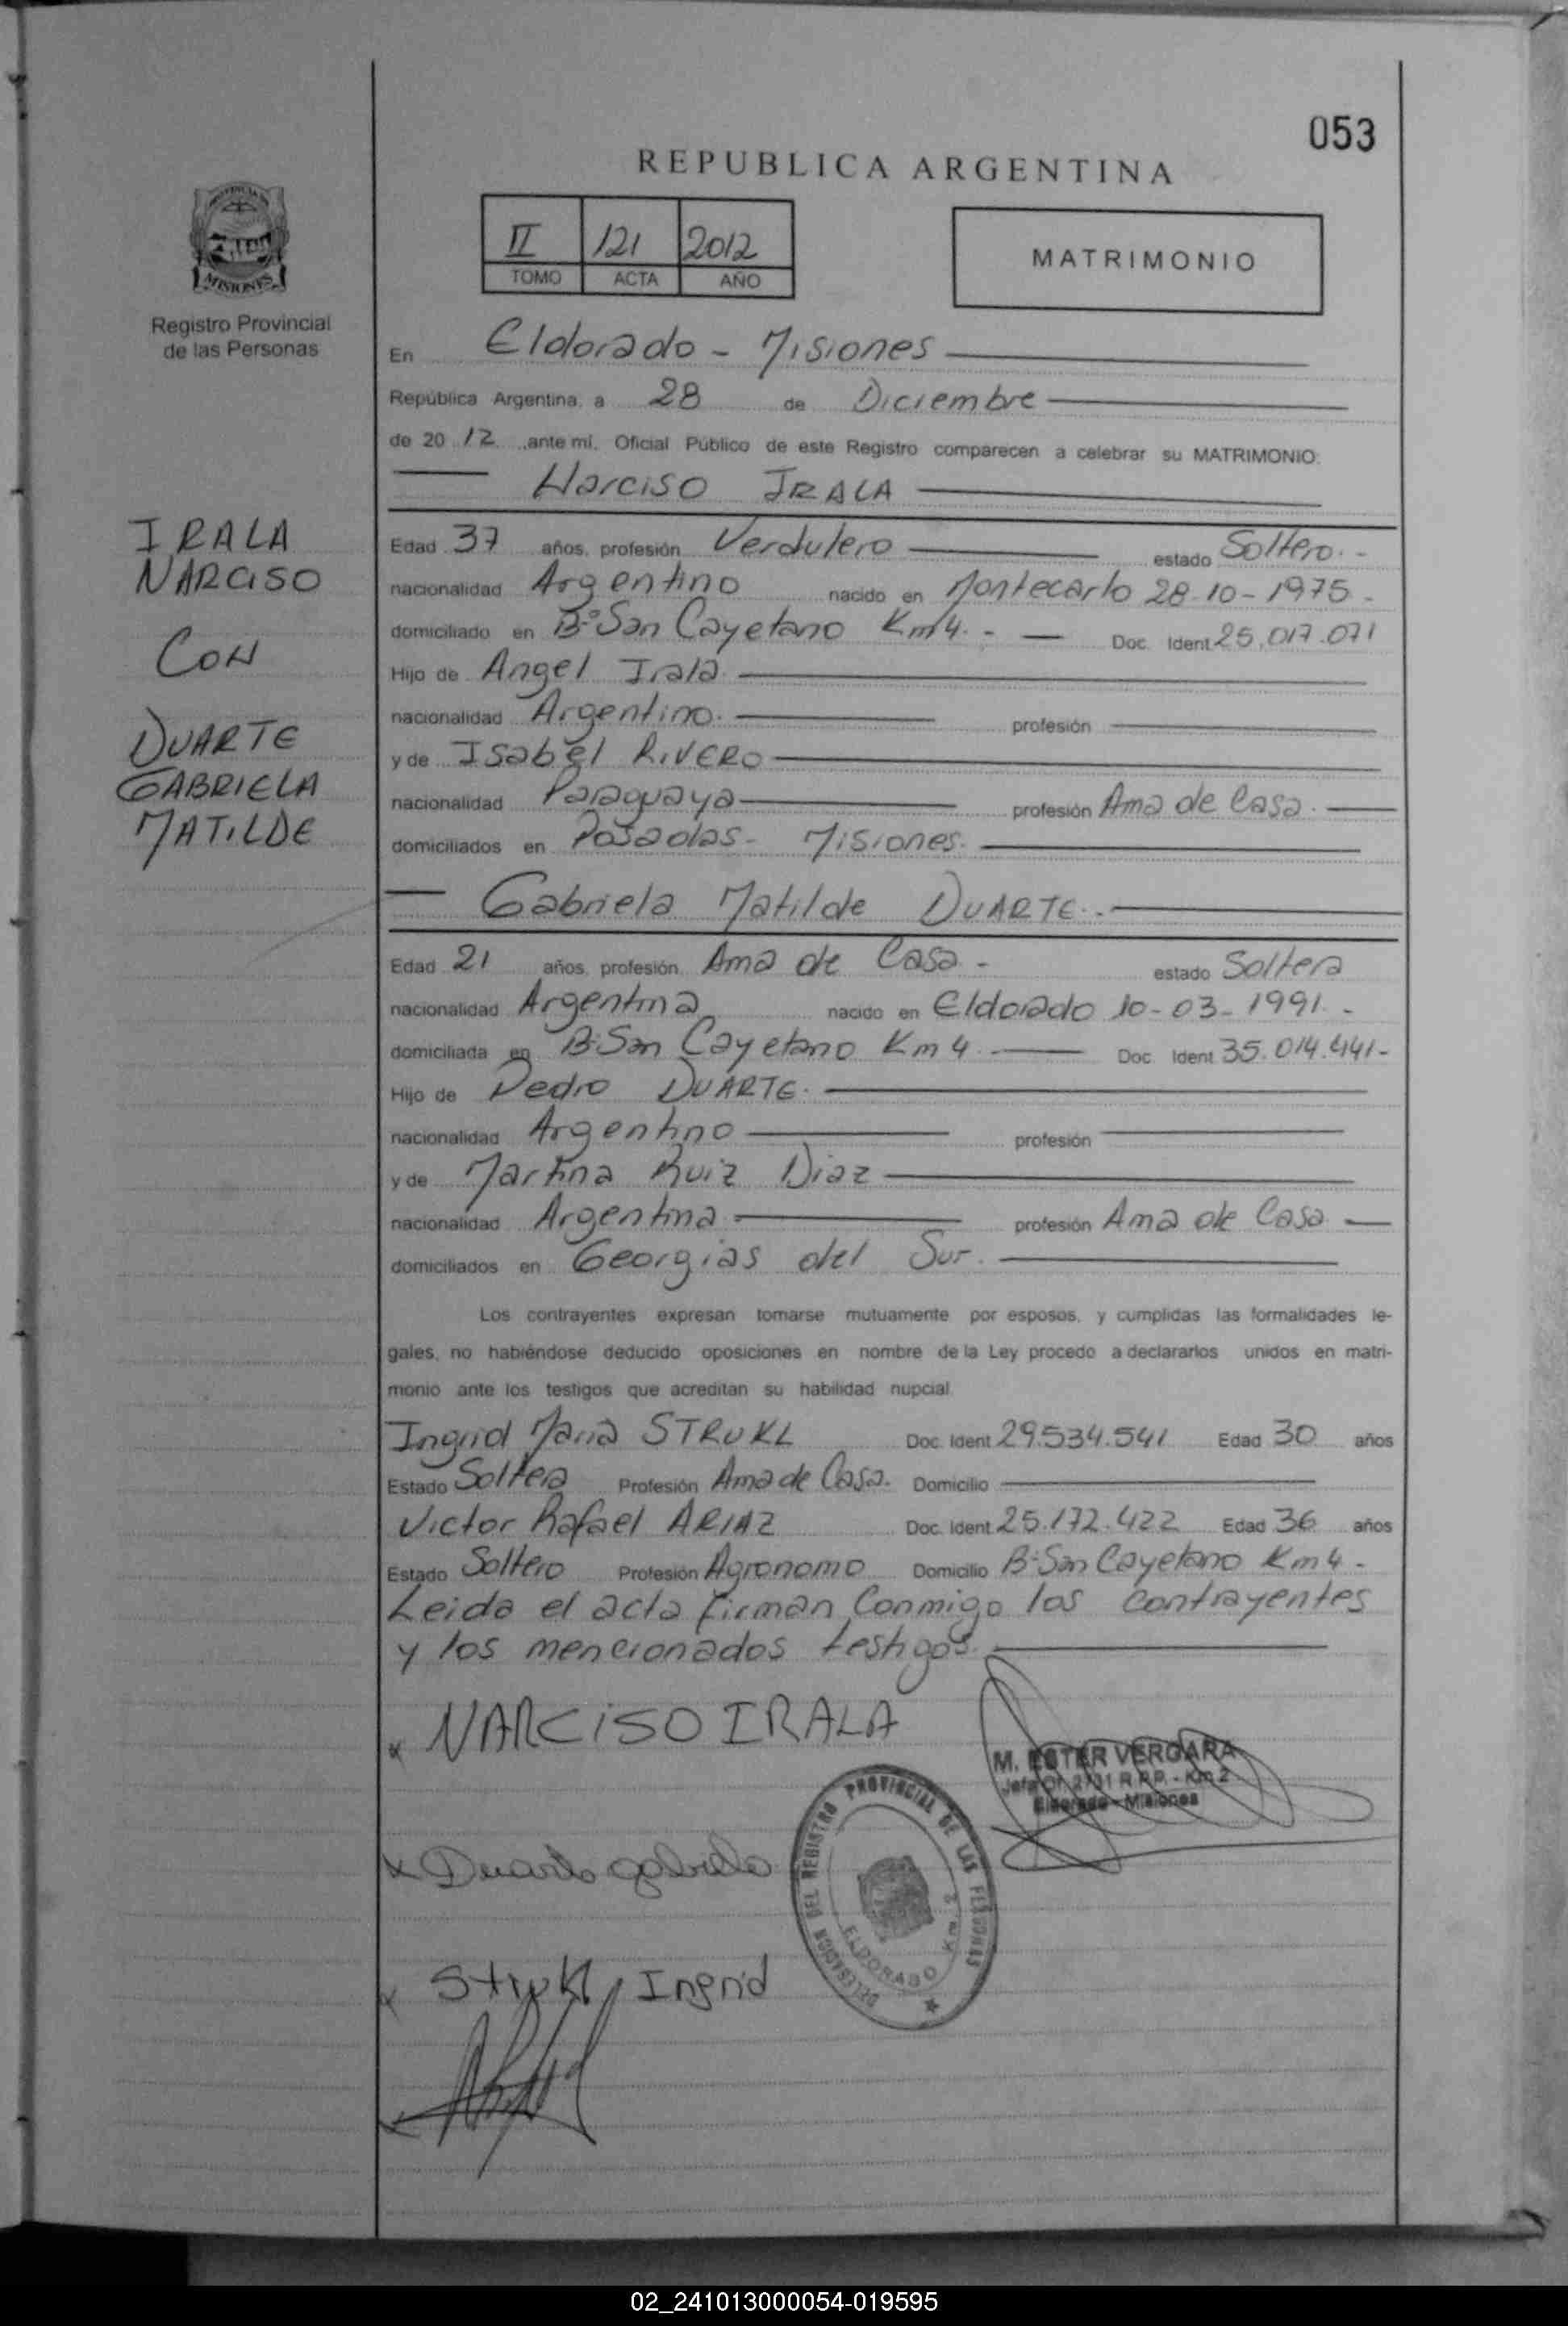 053
REPUBLICA ARGENTINA
II 121 2012
TOMO ACTA AÑO
MATRIMONIO
PROVINCIA
MISIONES
Registro Provincial
de las Personas
En Eldorado - Misiones
República Argentina, a 28 de Diciembre
de 20 12 , ante mí, Oficial Público de este Registro comparecen a celebrar su MATRIMONIO:
Narciso IRALA
IRALA
NARCISO
CON
DUARTE
GABRIELA
MATILDE
Edad 37 años, profesión Verdulero estado Soltero.-
nacionalidad Argentino nacido en Montecarlo 28-10-1975-
domiciliado en B:º San Cayetano Km 4.- Doc. Ident 25.017.071
Hijo de Angel Irala
nacionalidad Argentino. profesión
y de Isabel RIVERO
nacionalidad Paraguaya profesión Ama de Casa.
domiciliados en Posadas- Misiones.
Gabriela Matilde DUARTE.-
Edad 21 años, profesión Ama de Casa.- estado Soltera
nacionalidad Argentina nacido en Eldorado 10-03-1991.-
domiciliada en B:San Cayetano Km 4. Doc. Ident 35.014.441-
Hijo de Pedro DUARTE.
nacionalidad Argentino profesión
y de Martina Ruiz Diaz
nacionalidad Argentina profesión Ama de Casa
domiciliados en Georgias del Sur.
Los contrayentes expresan tomarse mutuamente por esposos, y cumplidas las formalidades le-
gales, no habiéndose deducido oposiciones en nombre de la Ley procedo a declararlos unidos en matri-
monio ante los testigos que acreditan su habilidad nupcial
Ingrid Maria STRUKL Doc. Ident 29.534.541 Edad 30 años
Estado Soltera Profesión Ama de Casa. Domicilio
Victor Rafael ARIAZ Doc. Ident 25.172.422 Edad 36 años
Estado Soltero Profesión Agronomo Domicilio B:San Cayetano Km 4-
Leida el acta firman Conmigo los contrayentes
y los mencionados testigos.
x NARCISO IRALA
M. ESTER VERGARA
Jefa Of. 2731 R.P.P. - Km 2
Eldorado - Misiones
x Duarte gabriela
DELEGACION DEL REGISTRO PROVINCIAL DE LAS PERSONAS
ELDORADO Km. 2
x Strukl Ingrid
02_241013000054-019595